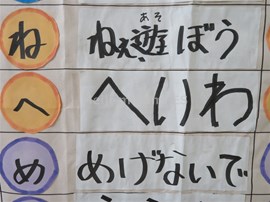 ね ねえ遊ぼう
あそ
へ へいわ
め めげないで